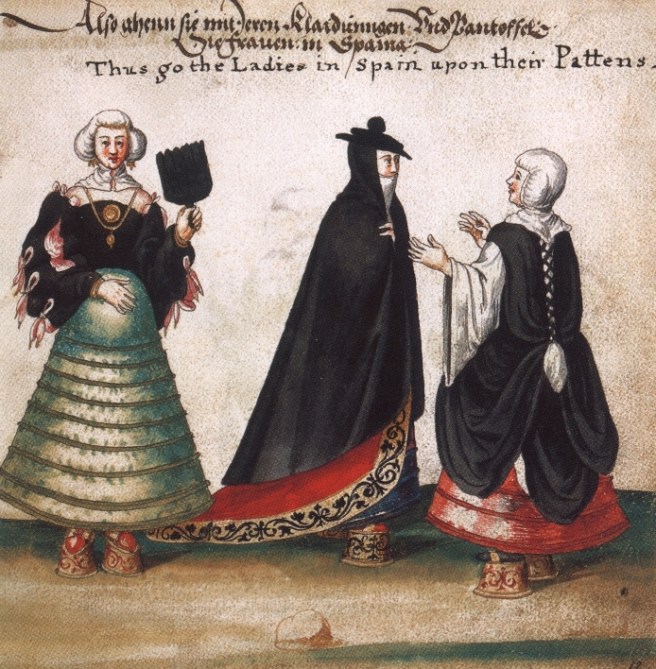 Also gehenn sie mit deren Klaidungen Und Pantoffel
Die frauen in Spania
Thus go the Ladies in Spain upon their Pattens.